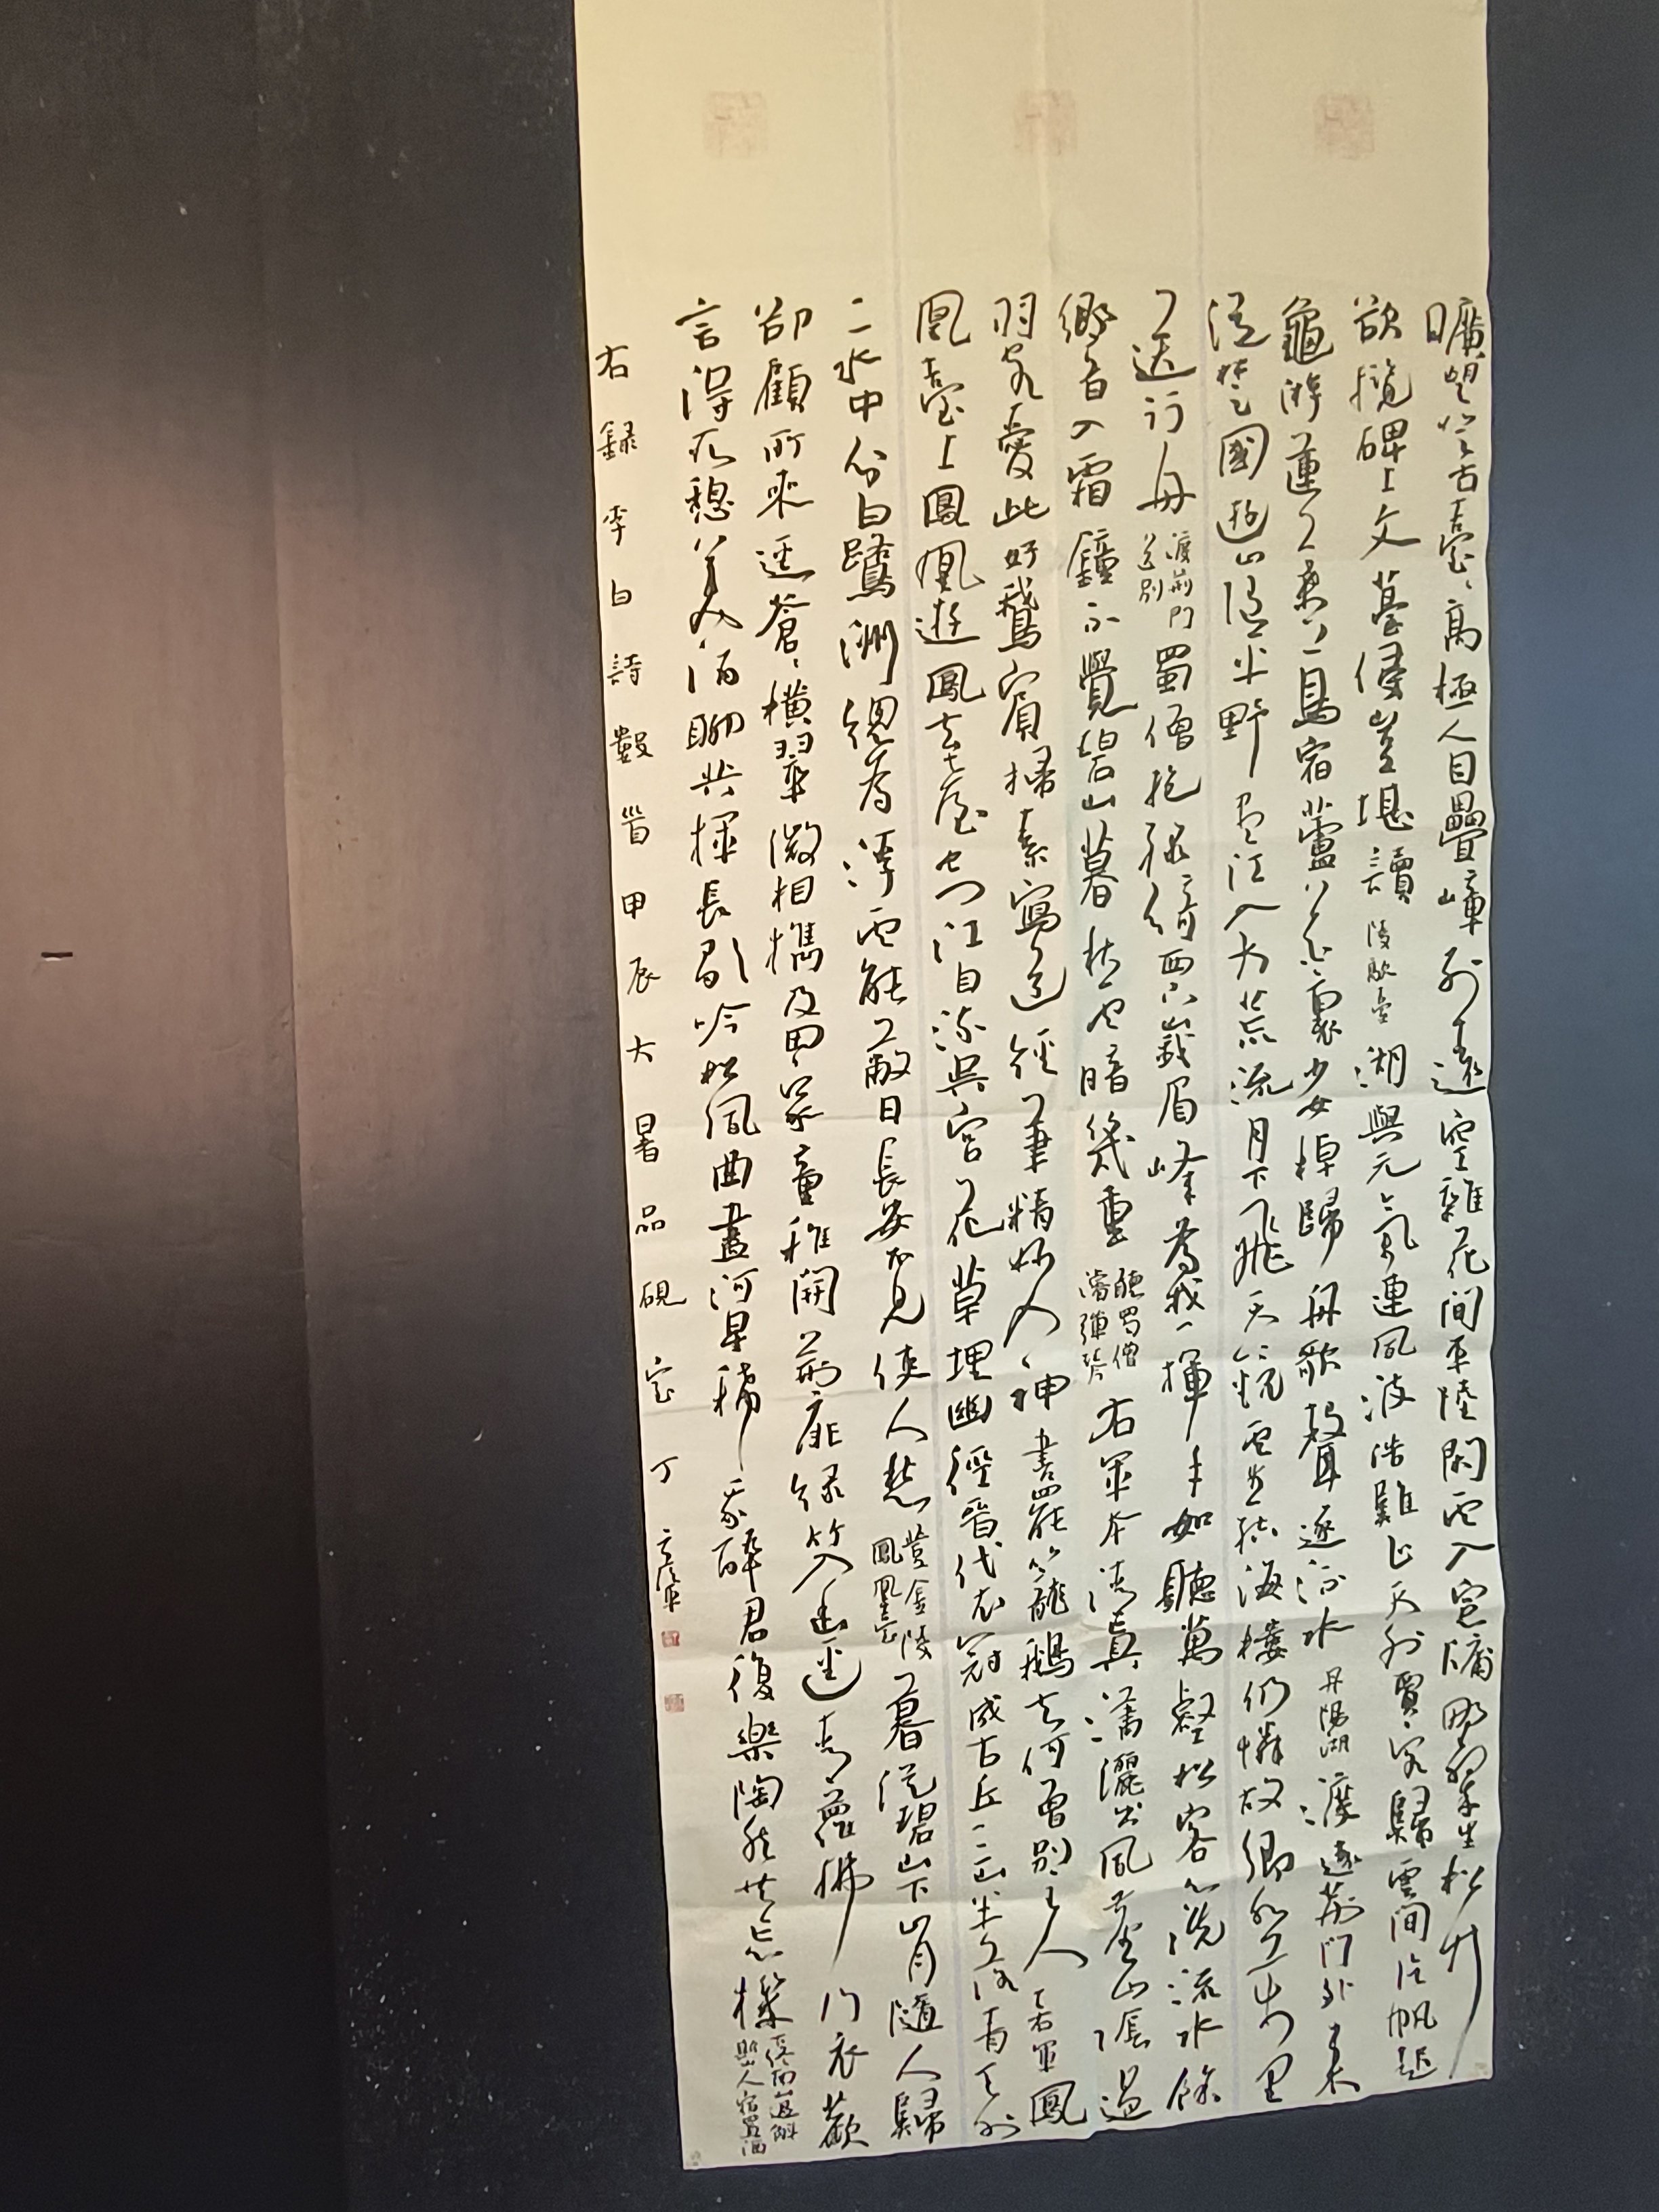 曠望登古臺臺高極人目疊嶂列遠空雜花間平陸閑雲入窗牖野翠生松竹
欲攬碑上文苔侵豈堪讀 陵歊臺 湖與元氣連風波浩難止天外賈客歸雲間片帆起
龜游蓮葉上鳥宿蘆花裏少女棹歸舟歌聲逐流水 丹陽湖 渡遠荊門外來
從楚國遊山隨平野盡江入大荒流月下飛天鏡雲生結海樓仍憐故鄉水萬里
送行舟 渡荊門送別 蜀僧抱綠綺西下峨眉峰為我一揮手如聽萬壑松客心洗流水餘
響入霜鐘不覺碧山暮秋雲暗幾重 聽蜀僧濬彈琴 右軍本清真瀟灑出風塵山陰過
羽客愛此好鵝賓掃素寫道經筆精妙入神書罷籠鵝去何曾別主人 王右軍 鳳
凰臺上鳳凰遊鳳去臺空江自流吳宮花草埋幽徑晉代衣冠成古丘三山半落青天外
二水中分白鷺洲總為浮雲能蔽日長安不見使人愁 登金陵鳳凰臺 暮從碧山下山月隨人歸
卻顧所來逕蒼蒼橫翠微相攜及田家童稚開荊扉綠竹入幽逕青蘿拂行衣歡
言得所憩美酒聊共揮長歌吟松風曲盡河星稀我醉君復樂陶然共忘機 下終南山過斛斯山人宿置酒
右錄李白詩數首甲辰大暑品硯室丁